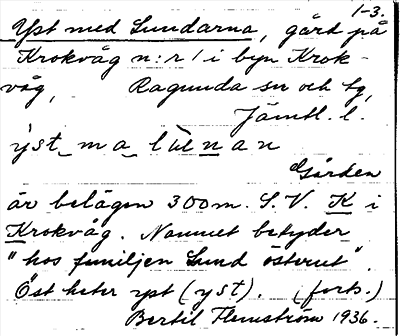 1-3.
Yst med Lundarna, gård på
Krokvåg n:r 1 i byn Krok-
våg, Ragunda sn och tg,
Jämtl. l.
yst_ma_lùnan
Gården
är belägen 300 m. S.V. K i
Krokvåg. Namnet betyder
"hos familjen Lund österut".
Öst heter yst (yst). (forts.)
Bertil Flemström 1936.